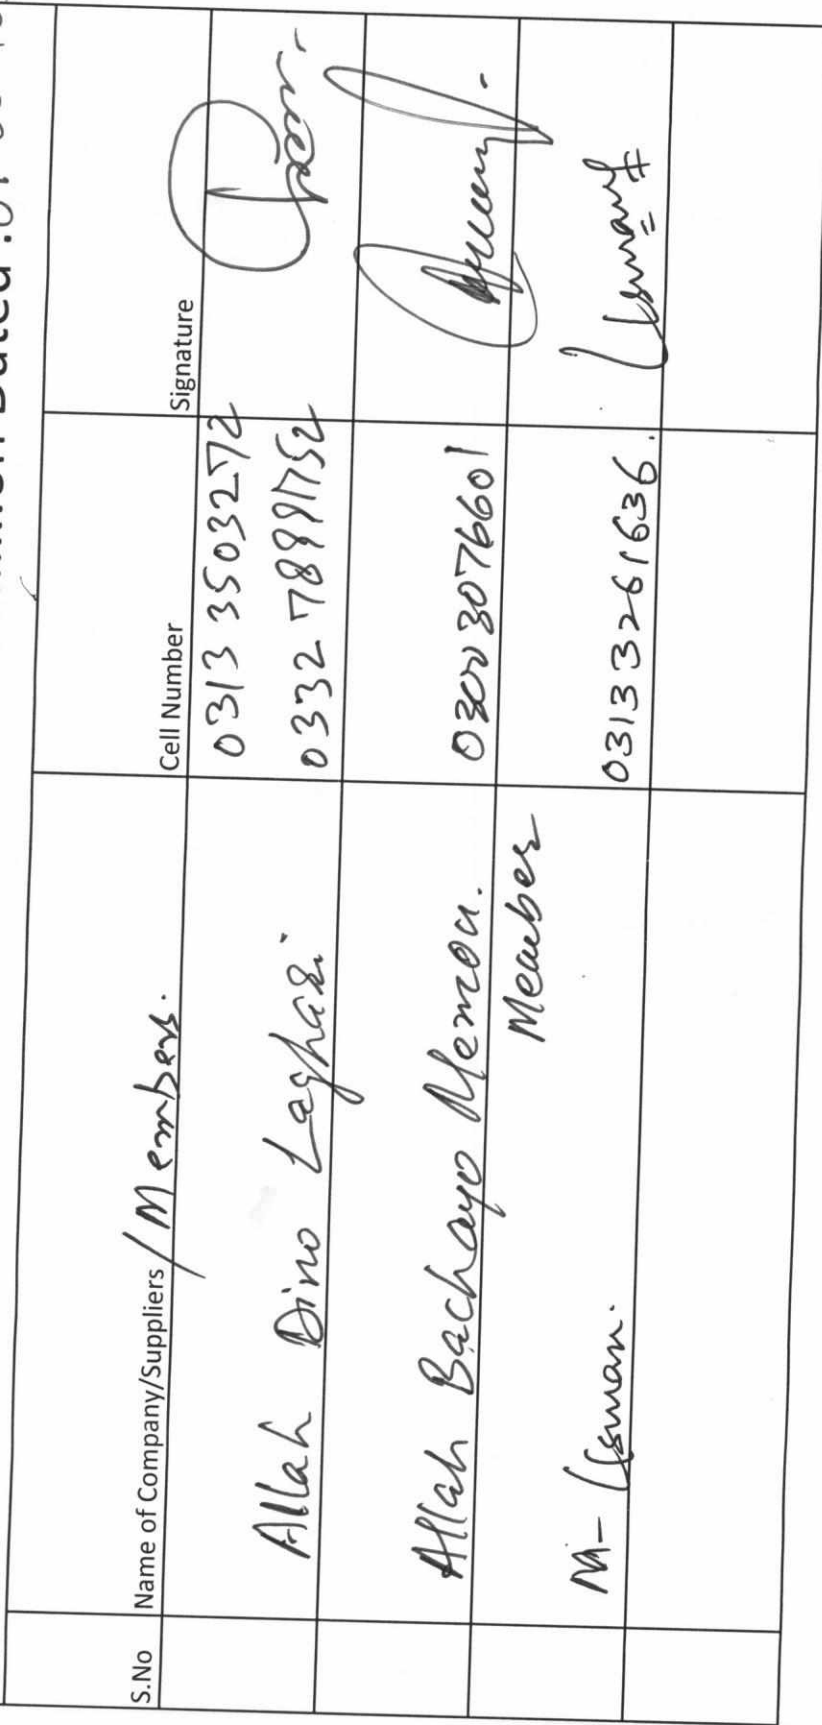 Dated :01
S.No Name of Company/Suppliers / Members. Cell Number Signature
Allah Dino Laghari 0313 3503272
0332
Allah Bachayo Memon. 03003076601
Member
M- Usman. 03133261636. Usman